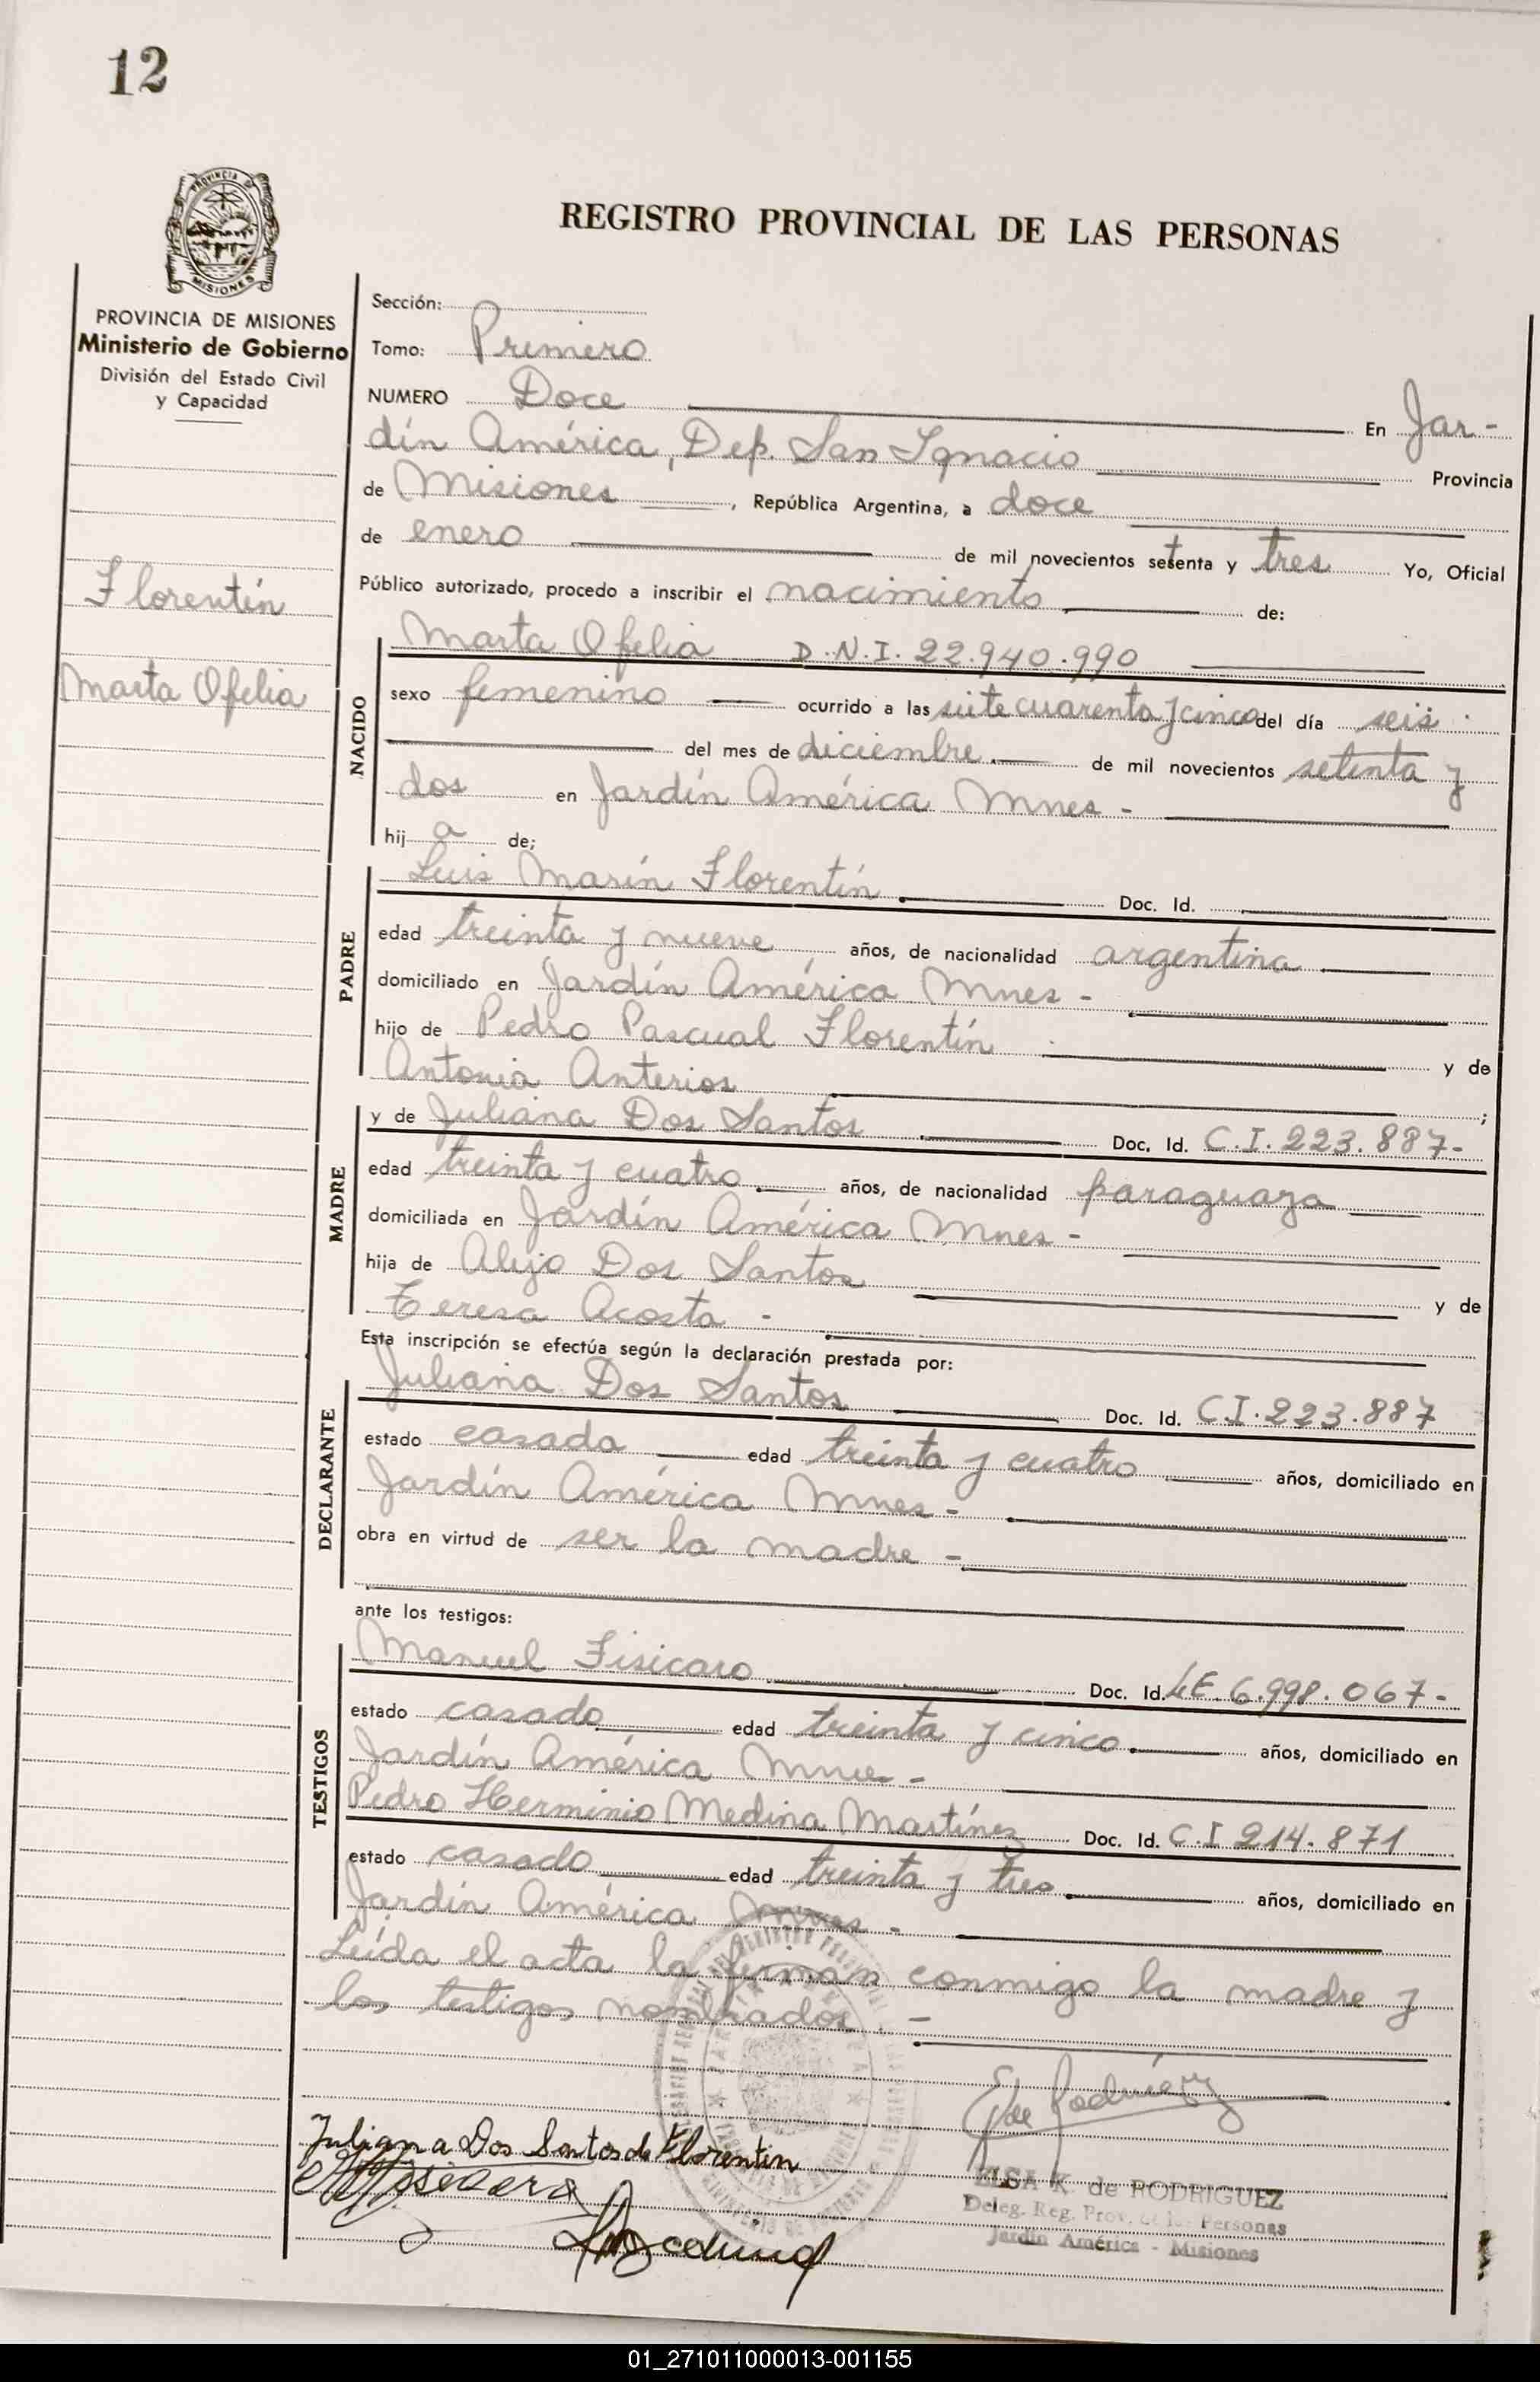 12
PROVINCIA DE
MISIONES
REGISTRO PROVINCIAL DE LAS PERSONAS
PROVINCIA DE MISIONES
Ministerio de Gobierno
División del Estado Civil
y Capacidad
Florentín
Marta Ofelia
Sección:
Tomo: Primero
NUMERO Doce En Jar-
dín América, Dep. San Ignacio Provincia
de Misiones, República Argentina, a doce
de enero de mil novecientos setenta y tres Yo, Oficial
Público autorizado, procedo a inscribir el nacimiento de:
NACIDO
Marta Ofelia D.N.I. 22.940.990
sexo femenino ocurrido a las siete cuarenta y cinco del día seis
del mes de diciembre de mil novecientos setenta y
dos en Jardín América Mnes -
hij a de;
PADRE
Luis Marín Florentín Doc. Id.
edad treinta y nueve años, de nacionalidad argentina
domiciliado en Jardín América Mnes -
hijo de Pedro Pascual Florentín y de
Antonia Anterios ;
MADRE
y de Juliana Dos Santos Doc. Id. C.I. 223.887-
edad treinta y cuatro años, de nacionalidad paraguaya
domiciliada en Jardín América Mnes -
hija de Alejo Dos Santos y de
Teresa Acosta -
Esta inscripción se efectúa según la declaración prestada por:
DECLARANTE
Juliana Dos Santos Doc. Id. C.I. 223.887
estado casada edad treinta y cuatro años, domiciliado en
Jardín América Mnes -
obra en virtud de ser la madre -
ante los testigos:
TESTIGOS
Manuel Fisicaro Doc. Id. LE. 6.998.067-
estado casado edad treinta y cinco años, domiciliado en
Jardín América Mnes -
Pedro Herminio Medina Martínez Doc. Id. C.I 214.871
estado casado edad treinta y tres años, domiciliado en
Jardín América Mnes -
Leída el acta la firman conmigo la madre y
los testigos nombrados. -
E de Rodríguez
Juliana Dos Santos de Florentin
ELSA K. de RODRIGUEZ
Deleg. Reg. Prov. de las Personas
Jardín América - Misiones
01_271011000013-001155